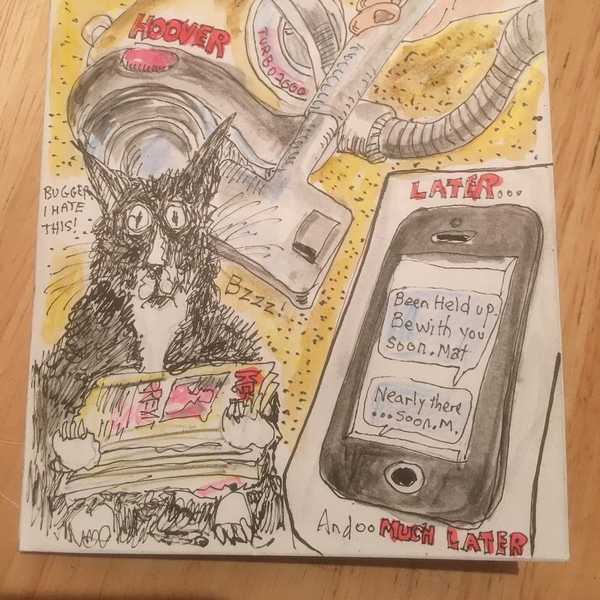 HOOVER
TURBO2600
BUGGER
I HATE
THIS!
BZZZ!
LATER...
Been Held up.
Be with you
soon. Mat
Nearly there
...soon. M.
And oo MUCH LATER